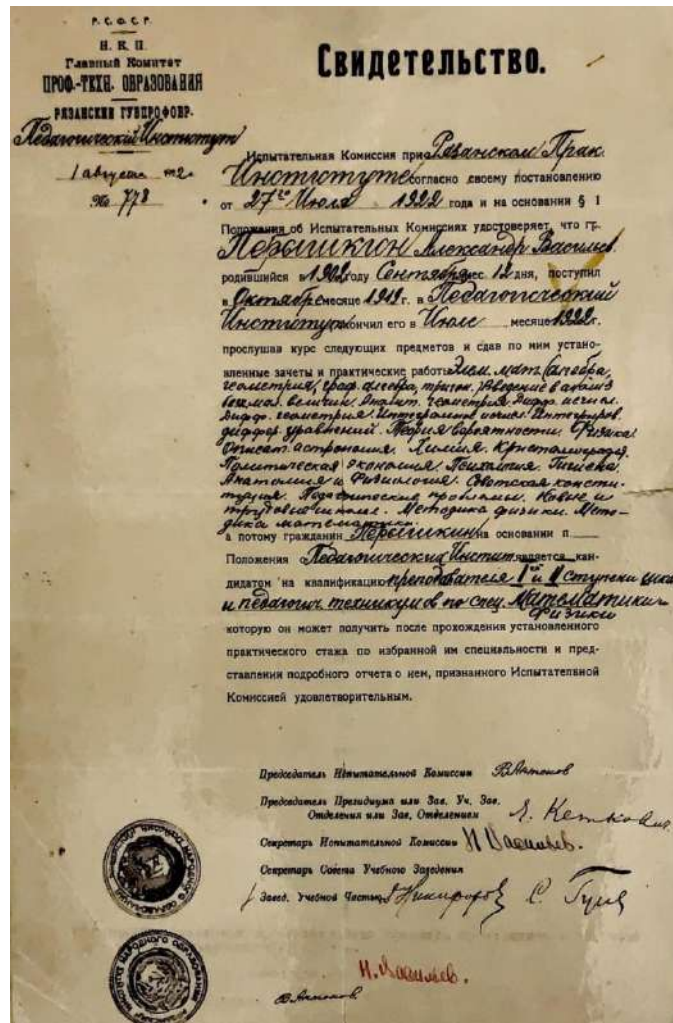 Р. С. Ф. С. Р.
Н. К. П.
Главный Комитет
ПРОФ.-ТЕХН. ОБРАЗОВАНИЯ
РЯЗАНСКИЙ ГУБПРОФОБР.
Педагогический Институт
1 августа 192 2 г.
№ 778
Свидетельство.
Испытательная Комиссия при Рязанском Прак.
Институте согласно своему постановлению
от 27го Июля 1922 года и на основании § 1
Положения об Испытательных Комиссиях удостоверяет, что гр.
Перышкин Александр Васильев.
родившийся в 1902 году Сентября мес. 12 дня, поступил
в Октябре месяце 1919 г. в Педагогический
Институт окончил его в Июле месяце 1922 г.
прослушав курс следующих предметов и сдав по ним устано-
вленные зачеты и практические работы: Элем. мат. (алгебра,
геометрия, граф. алгебра, тригон. Введение в анализ
беск. мал. величин. Аналит. геометрия. Дифф. исчисл.
Дифф. геометрия. Интегральн. исчисл. Интегриров.
диффер. уравнений. Теория вероятности. Физика.
Описат. астрономия. Химия. Кристаллография.
Политическая экономия. Психология. Гигиена.
Анатомия и Физиология. Советская консти-
туция. Педагогические проблемы. Новые и
трудовые школы. Методика физики. Мето-
дика математики.
а потому гражданин Перышкин на основании п.
Положения Педагогических Институт является кан-
дидатом на квалификацию преподавателя I й и II ступени школ
и педагогич. техникумов по спец. Математики и
Физики
которую он может получить после прохождения установленного
практического стажа по избранной им специальности и пред-
ставлении подробного отчета о нем, признанного Испытательной
Комиссией удовлетворительным.
Председатель Испытательной Комиссии В. Антонов
Председатель Президиума или Зав. Уч. Зав.
Отделения или Зав. Отделением
Секретарь Испытательной Комиссии Н. Васильев.
Секретарь Совета Учебного Заведения
Завед. Учебной Частью Никифоров
Н. Васильев.
В. Антонов.